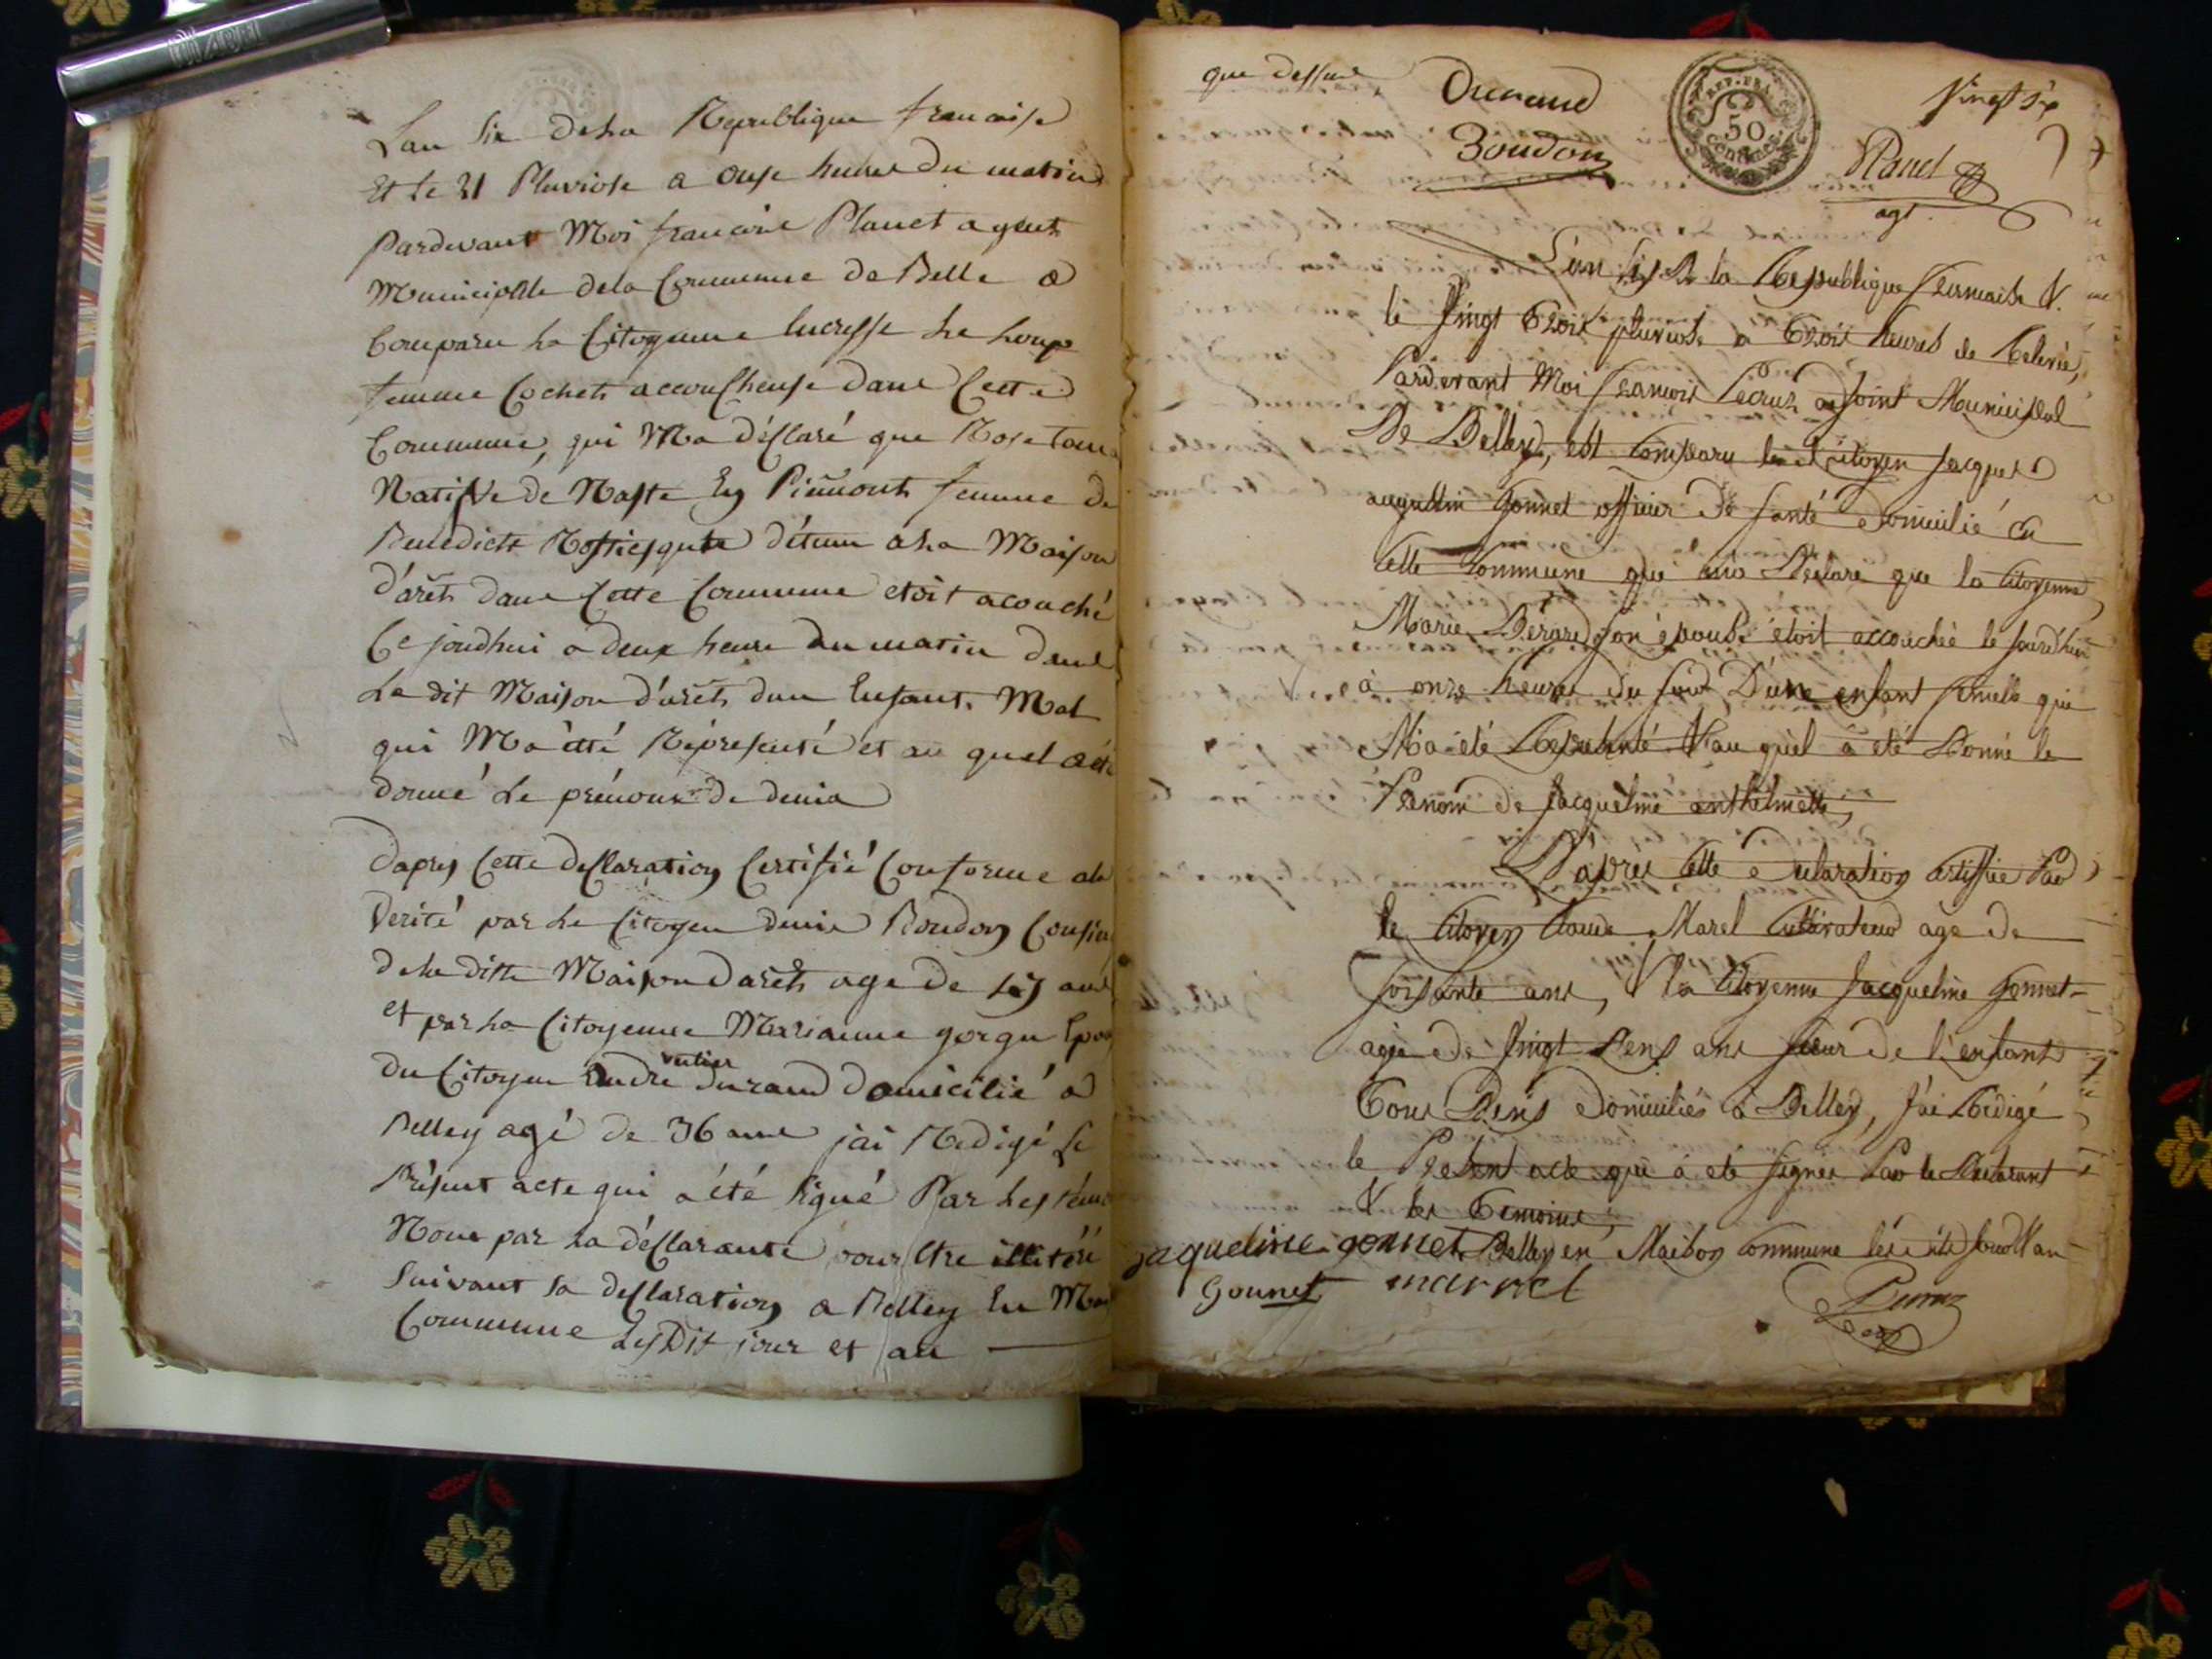 Lan Six de la Republique francaise
Et le 21 Pluviose a onse heures du matin
Pardevant Moi francois Planet agent
Municipalle dela Commune de Belle a
Comparu la Citoyenne lucresse Le Loup
femme Cochet accoucheuse dans Cette
Commune, qui Ma déclaré que Rose
Natifve de en Piémont femme de
Benedicte détenu a la Maison
d'arêt dans Cette Commune etoit acouché
Ce jourdhui a deux heure du matin dans
La dit Maison d'arêt dun Enfant Mal
qui Ma été Réprésenté et au quel a été
donné Le prénom de denis
dapres Cette declaration Certifié Conforme ala
Verité par Le Citoyen denis Boudon
de la ditte Maison darêt age de ans
et par La Citoyenne Marianne
du Citoyen andre durand domicilié a
Belley agé de 36 ans jai Redigé Le
Présent acte qui a été signé Par Les
Nous par La déclarante pour Etre illitéré
Suivant sa declaration a Belley En
Commune Les Dit jour et an
que dessus
Durand
Boudon
REP. FRA.
50
CENTIMES
Vingt six
Planet
agt
L'an six de la Republique francaise &
le vingt trois pluviose a trois heures de Relevée,
Pardevant Moi francois Peruz adjoint Municipal
De Belley, est Comparu le Citoyen Jacques
augustin Gonnet officier de santé domicilié en
cette Commune qui ma Declaré que la Citoyenne
Marie Berard son épouse étoit accouchée le jourd'hui
à onze heures du soir D'une enfant femelle qui
M'a été Représenté & au quel a été Donné le
Prenom de Jacqueline anthelmette,
D'apres Cette declaration certifiée Par
le Citoyen Claude Marel Cultivateur age de
soisante ans, & la Citoyenne Jacqueline Gonnet
agée de vingt Deux ans sœur de l'enfant
tous Deux domiciliés à Belley, J'ai Redigé
le Present acte qui a eté signée Par le Declarant
& les temoins,
jaqueline gonnet Belley en Maison Commune les dits jour & an
Gonnet marrel
Peruz